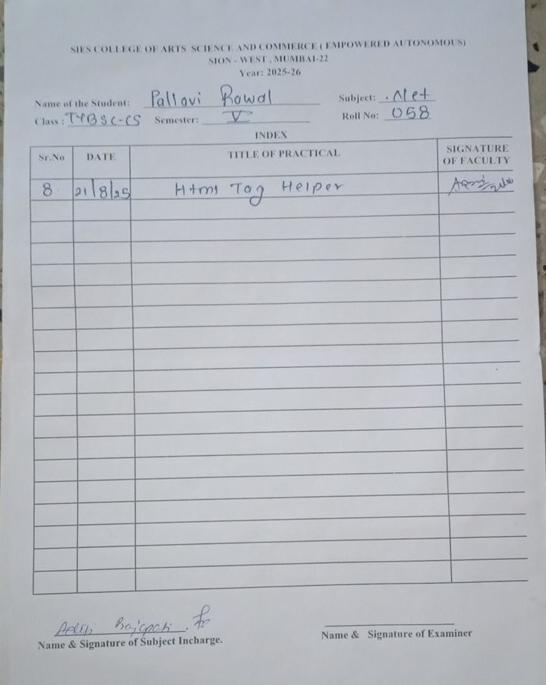 SIES COLLEGE OF ARTS SCIENCE AND COMMERCE ( EMPOWERED AUTONOMOUS)
SION - WEST , MUMBAI-22
Year: 2025-26
Name of the Student: Pallavi Rawal Subject: .Net
Class : TYBSC-CS Semester: V Roll No: 058
INDEX
Sr.No DATE TITLE OF PRACTICAL SIGNATURE OF FACULTY
8 21/8/25 Html Tag Helper
Name & Signature of Subject Incharge. Name & Signature of Examiner